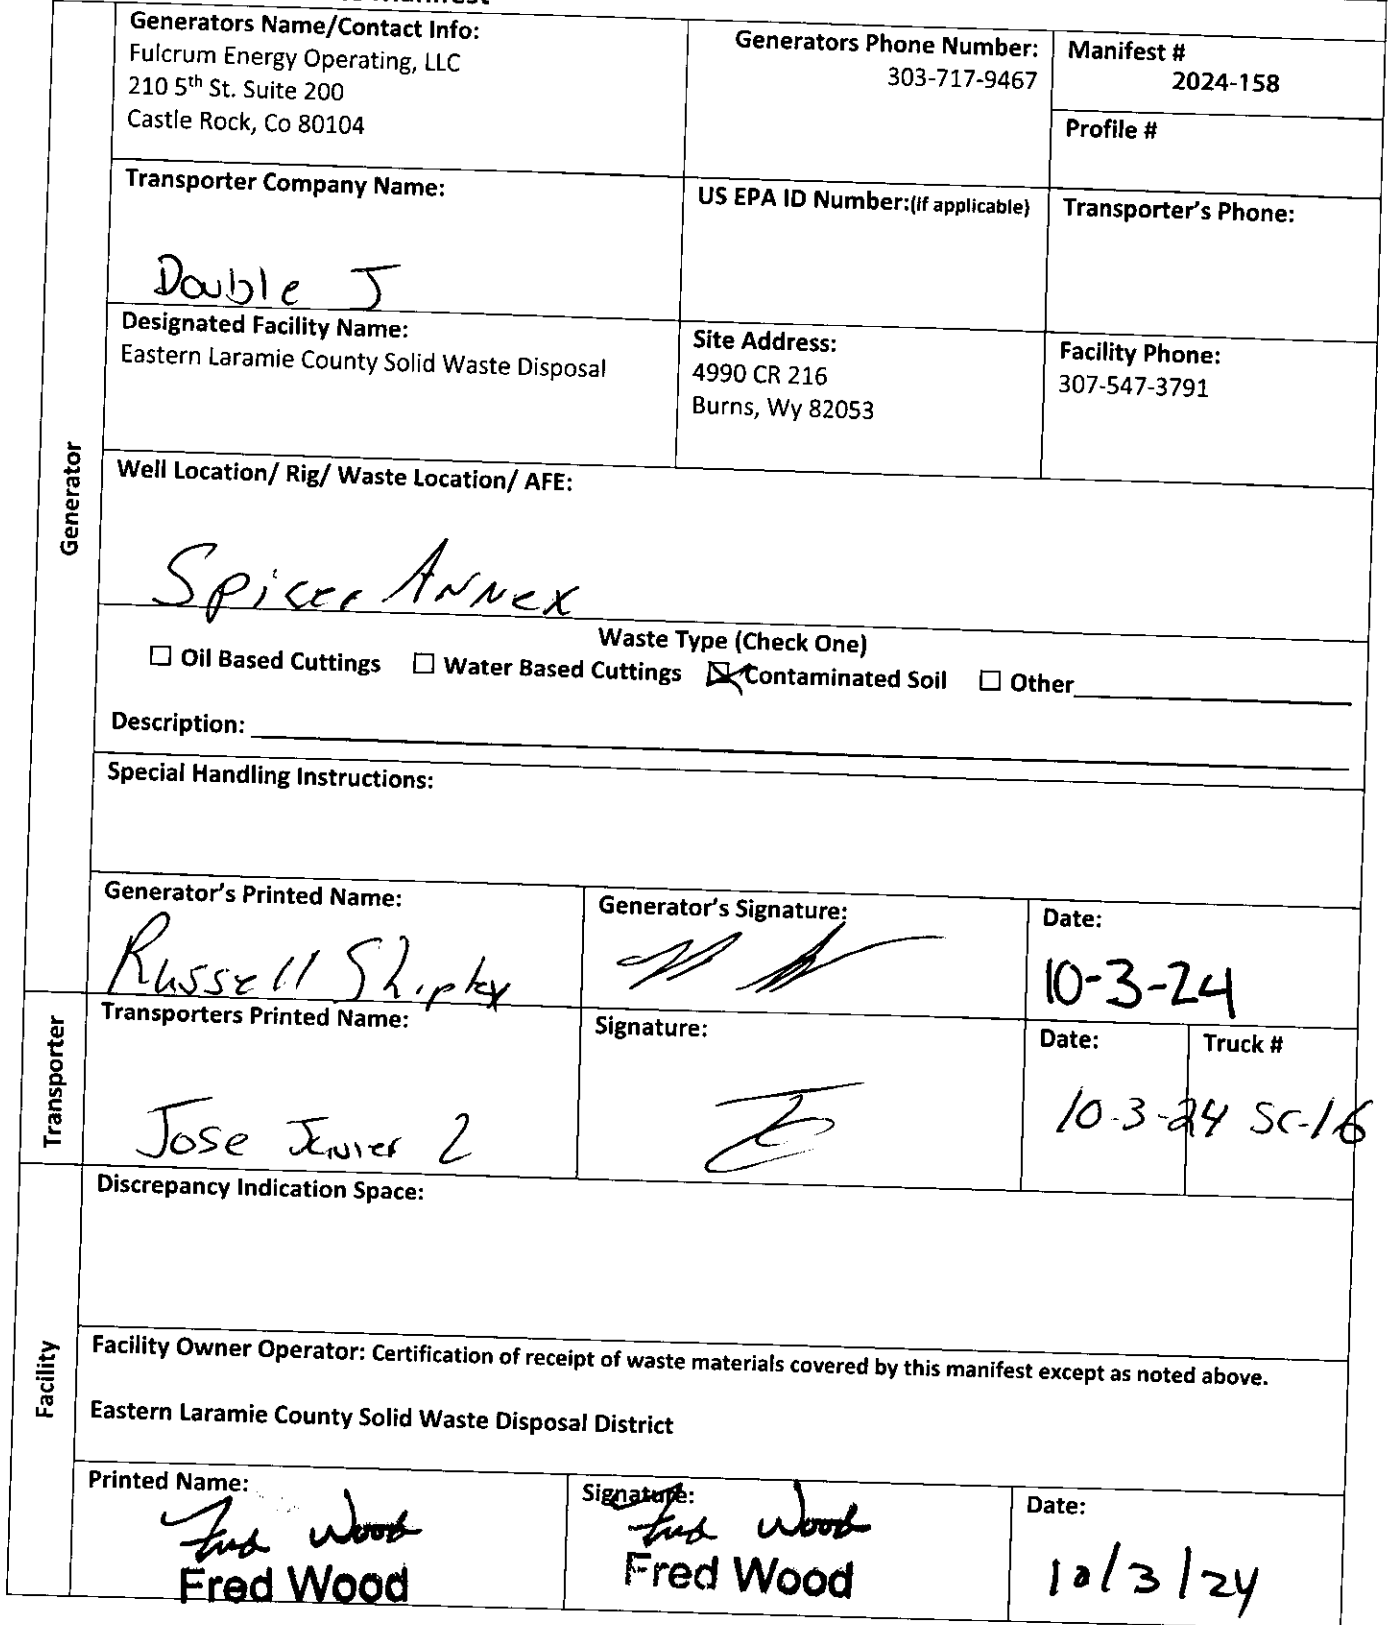 Manifest
Generators Name/Contact Info:
Fulcrum Energy Operating, LLC
210 5th St. Suite 200
Castle Rock, Co 80104
Generators Phone Number:
303-717-9467
Manifest #
2024-158
Profile #
Transporter Company Name:
Double J
US EPA ID Number:(if applicable)
Transporter's Phone:
Designated Facility Name:
Eastern Laramie County Solid Waste Disposal
Site Address:
4990 CR 216
Burns, Wy 82053
Facility Phone:
307-547-3791
Generator
Well Location/ Rig/ Waste Location/ AFE:
Spicer Annex
Waste Type (Check One)
☐ Oil Based Cuttings ☐ Water Based Cuttings ☒ Contaminated Soil ☐ Other
Description:
Special Handling Instructions:
Generator's Printed Name:
Russell Shipley
Generator's Signature:
Date:
10-3-24
Transporter
Transporters Printed Name:
Jose Javier 2
Signature:
Date:
10-3-24
Truck #
SC-16
Facility
Discrepancy Indication Space:
Facility Owner Operator: Certification of receipt of waste materials covered by this manifest except as noted above.
Eastern Laramie County Solid Waste Disposal District
Printed Name:
Fred Wood
Fred Wood
Signature:
Fred Wood
Fred Wood
Date:
10/3/24